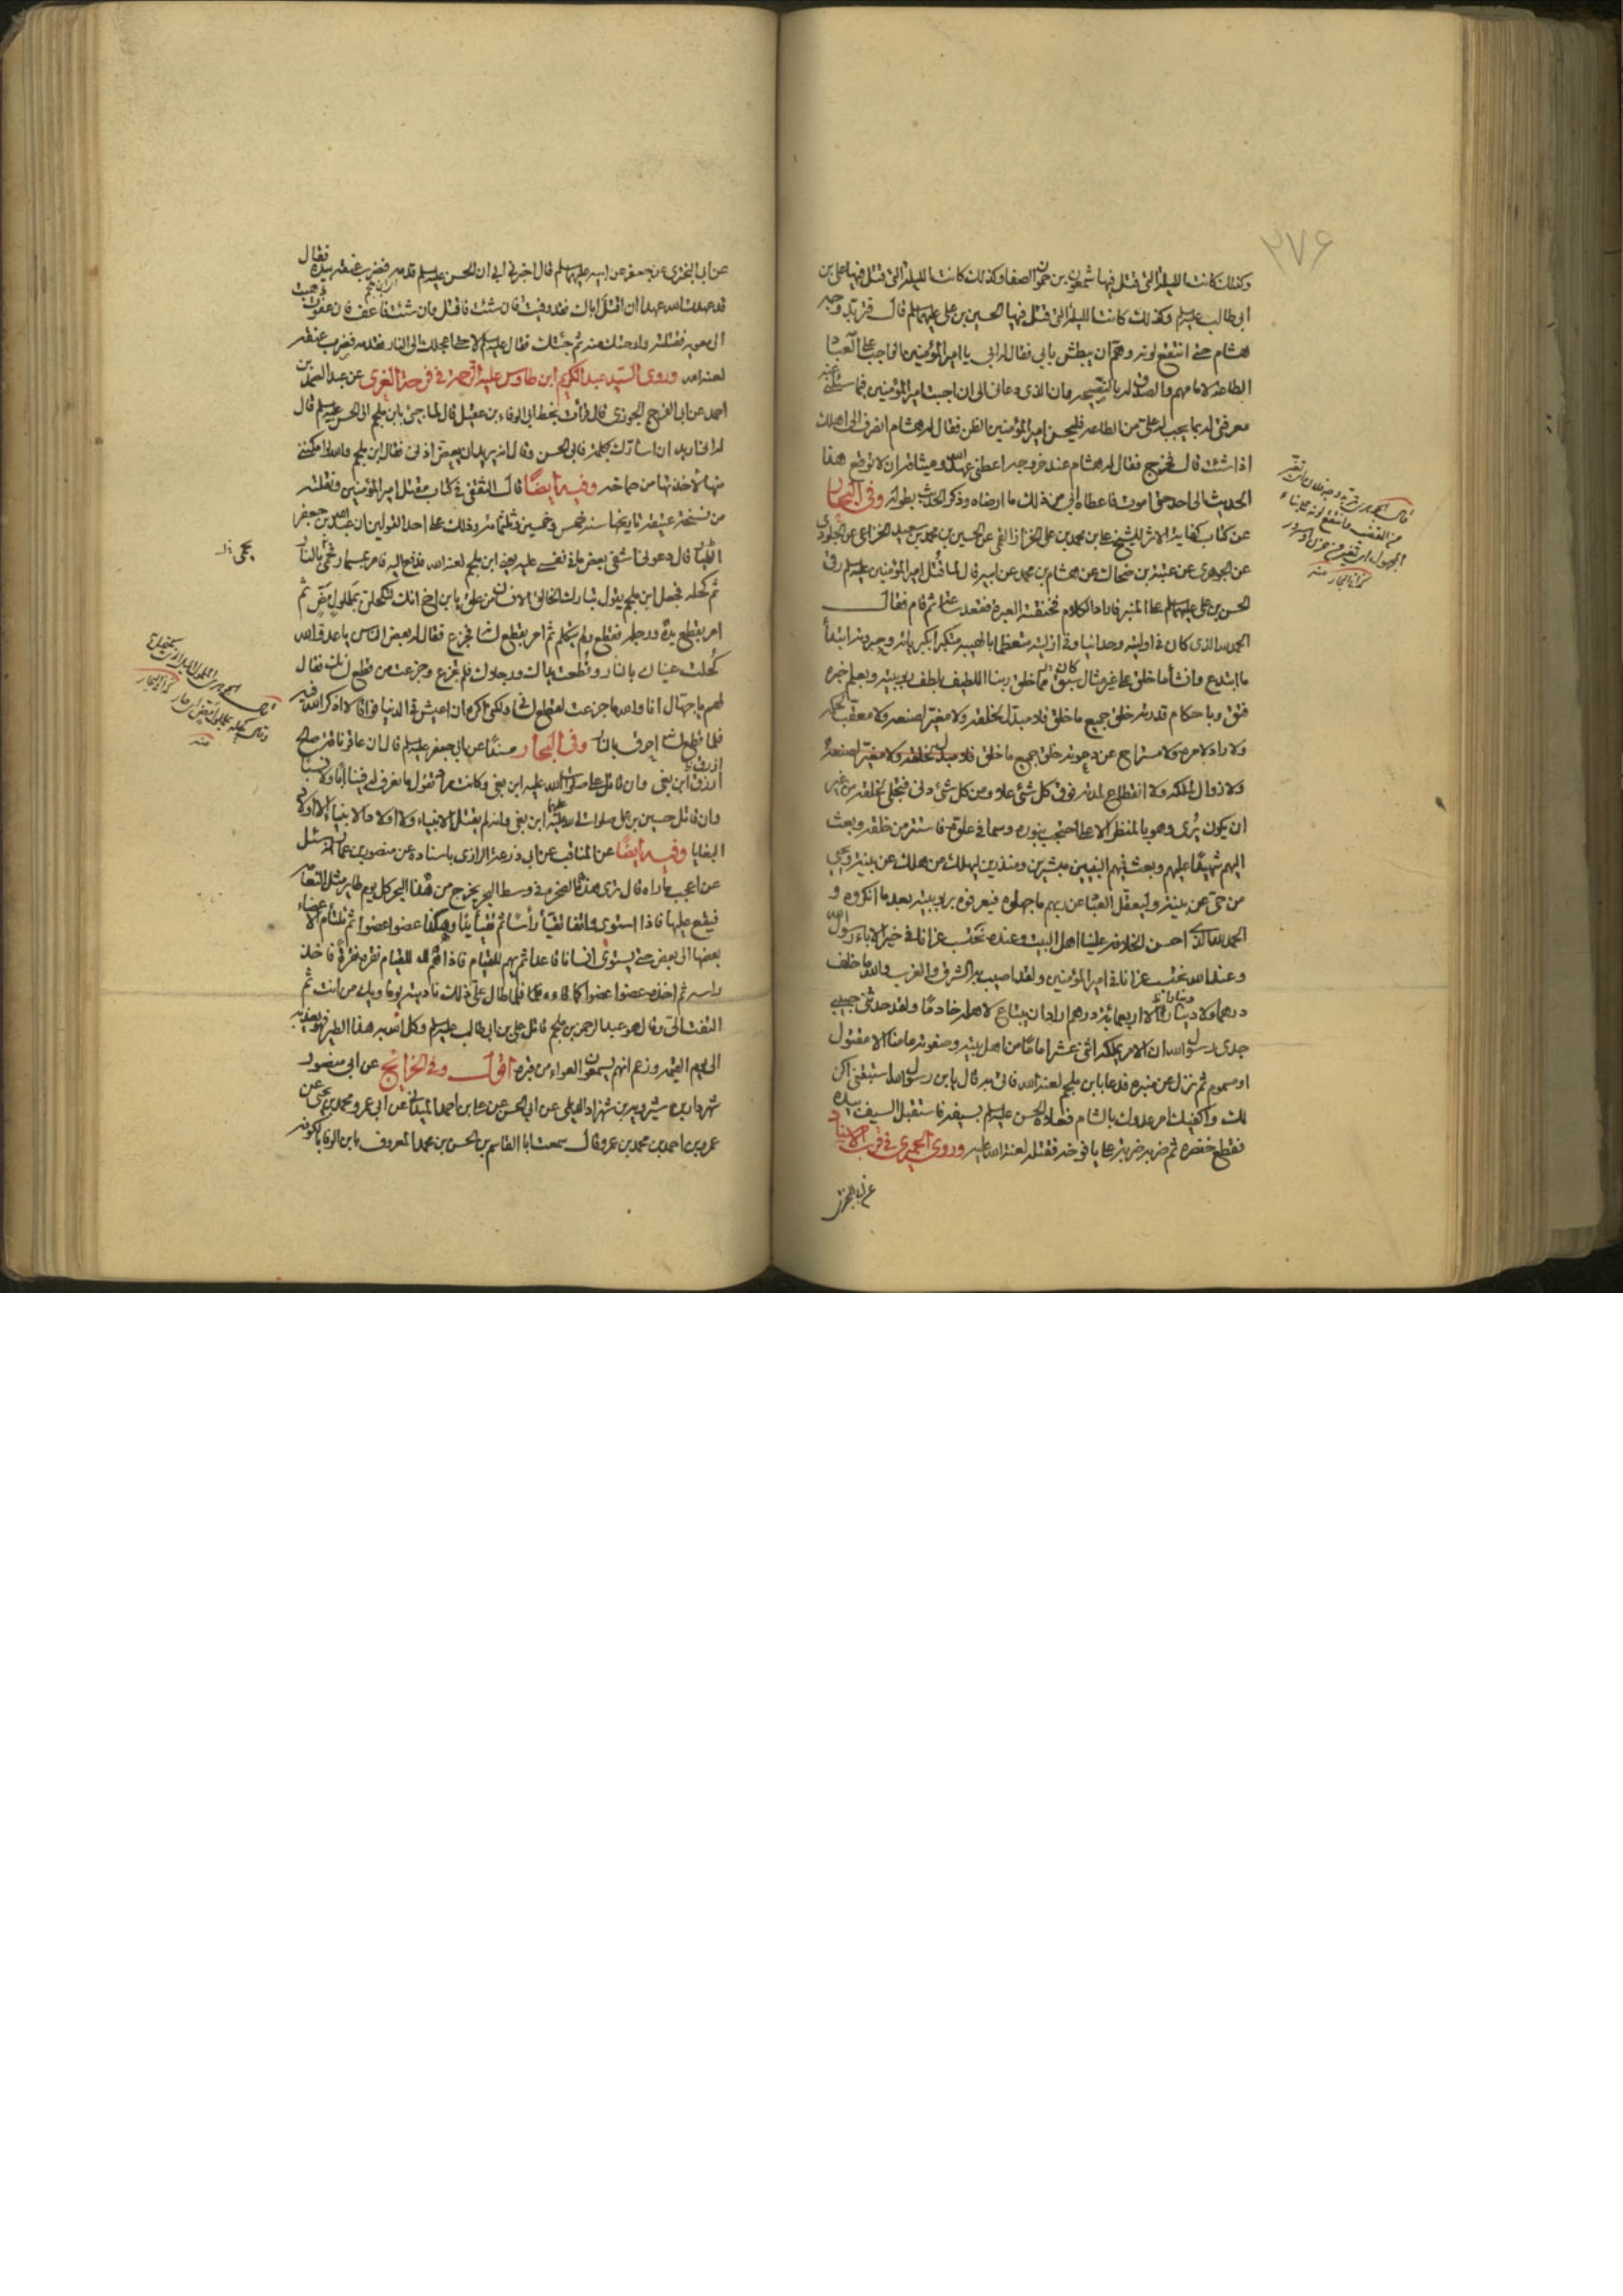 ۲۷۶
وكذلك كانت الليلة التي قتل فيها شمعون بن حمون الصفا وكذلك كانت الليلة التي قتل فيها علي بن
ابي طالب عليه السلم وكذلك كانت الليلة التي قتل فيها الحسين بن علي عليهما السلم قال فتربد وجه
هشام حتى انتقع لونه وهم ان يبطش بابي فقال له ابي يا امير المؤمنين الواجب على العباد
الطاعة لامامهم والصدق له بالنصيحة وان الذي دعاني الى ان اجبت امير المؤمنين فيما سئلني عنه
معرفتي له بما يجب له علي من الطاعة فليحسن امير المؤمنين الظن فقال له هشام انصرف الى اهلك
اذا شئت قال فخرج فقال له هشام عند خروجه اعطني عهد الله وميثاقه ان لا توقع هذا
الحديث الى احد حتى اموت فاعطاه ابي من ذلك ما ارضاه وذكر الحديث بطوله وفي البحار
عن كتاب كفاية الاثر للشيخ علي بن محمد بن علي الخزاز القمي عن الحسين بن محمد بن سعيد الخزاعي عن الجلودي
عن الجوهري عن عتبة بن ضحاك عن هشام بن محمد عن ابيه قال لما قتل امير المؤمنين عليه السلم رقى
الحسن بن علي عليهما السلم المنبر فاراد الكلام فخنقته العبرة فقعد ثم قام فقال
الحمد لله الذي كان في اوليته وحدانيا وفي ازليته متعظما بالهيبة متكبرا بكبريائه وجبروته ابتدأ
ما ابتدع وانشأ ما خلق على غير مثال كان سبق مما خلق ربنا اللطيف بلطف ربوبيته وبعلم خبره
فتق وباحكام قدرته خلق جميع ما خلق فلا مبدل لخلقه ولا مغير لصنعه ولا معقب لحكمه
ولا راد لامره ولا مستراح عن دعوته خلق جميع ما خلق فلا مبدل لخلقه ولا مغير لصنعه
ولا زوال لملكه ولا انقطاع لمدته فوق كل شئ علا ومن كل شئ دنى فتجلى لخلقه من غير
ان يكون يرى وهو بالمنظر الاعلى احتجب بنوره وسما في علوه فاستتر من خلقه وبعث
اليهم شهيدا عليهم وبعث فيهم النبيين مبشرين ومنذرين ليهلك من هلك عن بينة ويحيى
من حي عن بينة وليعقل العباد عن ربهم ما جهلوه فيعرفوه بربوبيته بعد ما انكروه و
الحمد لله الذي احسن الخلافة علينا اهل البيت وعنده نحتسب عزانا في خير الاباء رسول الله
وعند الله نحتسب عزانا في امير المؤمنين ولقد اصيب به الشرق والغرب والله ما خلف
درهما ولا دينارا الا اربعمائة درهم اراد ان يبتاع لاهله خادما ولقد حدثني حبيبي
جدي رسول الله ان الامر يملكه اثنى عشر اماما من اهل بيته وصفوته ما منا الا مقتول
او مسموم ثم نزل عن منبره فدعا بابن ملجم لعنه الله فاتى به قال يا بن رسول الله استبقني اكن
لك واكفيك امر عدوك بالشام فعلاه الحسن عليه السلم بسيفه فاستقبل السيف بيده
فقطع خنصره ثم ضربه ضربة على يافوخه فقتله لعنة الله عليه وروى الحميري في قرب الاسناد
عن ابي البختري
عن ابي البختري عن جعفر عن ابيه عليهما السلم قال اخبرني ابي ان الحسن عليه السلم قدمه فضرب عنقه بيده فقال
قد عهدت الله عهدا ان اقتل اباك فقد وفيت فان شئت فاقتل وان شئت فاعف فان عفوت ذهبت
الى معوية فقتلته وارحتك منه ثم جئتك فقال عليه السلم لا حتى اعجلك الى النار فقدمه فضرب عنقه
لعنه الله وروى السيد عبد الكريم ابن طاوس عليه الرحمة في فرحة الغري عن عبد الصمد بن
احمد عن ابي الفرج الجوزي قال قرأت بخط ابي الوفاء بن عقيل قال لما جئ بابن ملجم الى الحسن عليه السلم قال
له اني اريد ان اسارك بكلمة فابى الحسن وقال انه يريد ان يعض اذني فقال ابن ملجم والله لو امكنني
منها لاخذتها من صماخه وفيه ايضا قال الثقفي في كتاب مقتل امير المؤمنين ونقلته
من نسخة عتيقة تاريخها سنة خمس وخمسين وثلثمائة وذلك على احد القولين ان عبد الله بن جعفر
قال دعوني اشفي بعض ما في نفسي عليه يعني ابن ملجم لعنه الله فدفع اليه فامر بمسمار فحمي بالنار
ثم كحله فجعل ابن ملجم يقول تبارك الخالق الانسان من علق يا بن اخ انك لتكحلن بملمول مض ثم
امر بقطع يده ورجله فقطع ولم يتكلم ثم امر بقطع لسانه فجزع فقال له بعض الناس يا عدو الله
كحلت عيناك بالنار وقطعت يداك ورجلاك فلم تجزع وجزعت من قطع لسانك فقال
لهم يا جهال انا والله ما جزعت لقطع لساني ولكني اكره ان اعيش في الدنيا فواقا لا اذكر الله فيه
فلما قطع لسانه احرق بالنار وفي البحار مسندا عن ابي جعفر عليه السلم قال ان عاقر ناقة صالح
ازرق ابن بغي وان قاتل علي صلوات الله عليه ابن بغي وكانت مراد تقول ما نعرف له فينا ابا ولا نسبا
وان قاتل حسين بن علي صلوات الله عليهما ابن بغي وانه لم يقتل الانبياء ولا اولاد الانبياء الا اولاد
البغايا وفيه ايضا عن المناقب عن ابي زرعة الرازي باسناده عن منصور بن عمار انه سئل
عن اعجب ما راه قال ترى هذه الصخرة في وسط البحر يخرج من هذا البحر كل يوم طاير مثل النعامة
فيقع عليها فاذا استوى واقفا تقيأ رأسا ثم تقيأ يدا وهكذا عضوا عضوا ثم تلتأم الاعضاء
بعضها الى بعض حتى يستوى انسانا قاعدا ثم يهم للقيام فاذا هم للقيام نقره نقرة فاخذ
راسه ثم اخذه عضوا عضوا كما قاءه فلما طال علي ذلك ناديته يوما ويلك من انت ثم
التفت الي وقال هو عبد الرحمن بن ملجم قاتل علي بن ابي طالب عليه السلم وكل الله به هذا الطير فهو يعذبه
الى يوم القيمة وزعم انهم يسمعون العواء من قبره اقول وفي الخرائج عن ابي منصور
شهردار بن شيرويه بن شهردار الديلمي عن ابي الحسن علي بن احمد الميداني عن ابي عمرو محمد بن يحيى عن
عمرو بن احمد بن محمد بن عمرو قال سمعت ابا القاسم بن الحسن بن محمد المعروف بابن الوفا بالكوفة